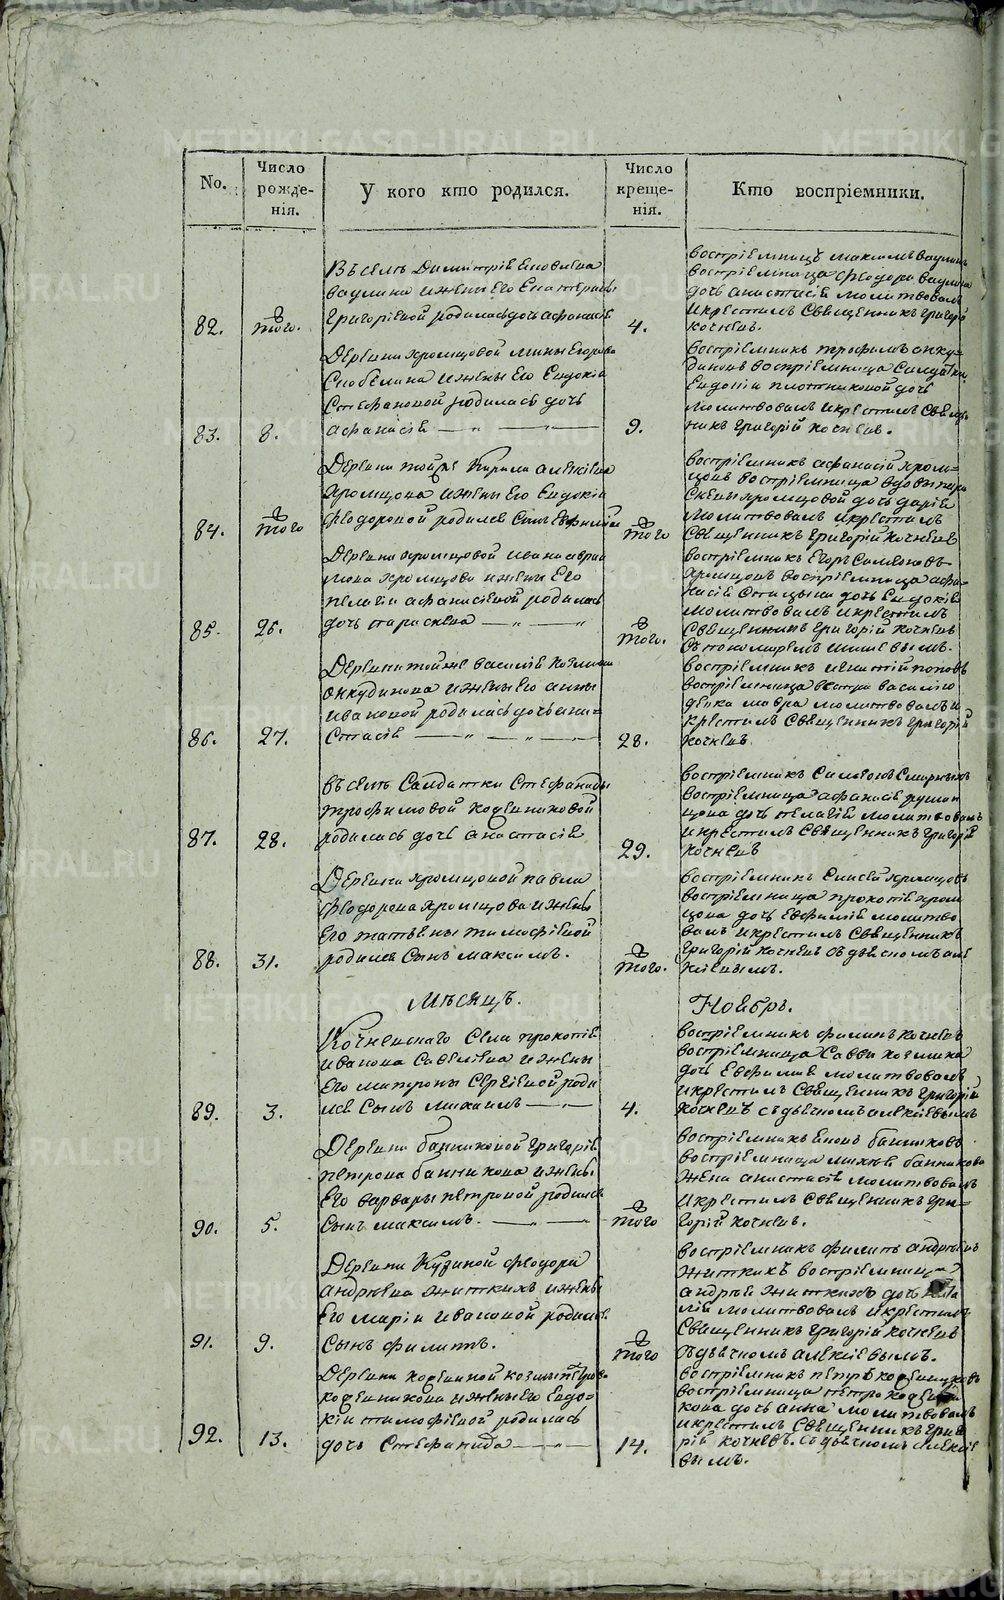 METRIKI.GASO-URAL.RU
No.
Число рожденія.
У кого кто родился.
Число крещенія.
Кто воспріемники.
82.
того.
Въ селѣ Димитріѧ
ваулина и жены его Екатерины
Григоріевой родилась дочь афанасіѧ
4.
воспріемникъ максимъ ваулинъ
воспріемница феодора ваулина
дочь анастасіѧ молитвовалъ
и крестилъ Священникъ григорій
кочневъ.
83.
8.
Деревни хромцовой мины Егорова
Скобелина и жены Его Евдокіи
Стефановой родилась дочь
афанасіѧ
9.
воспріемникъ трофимъ онку-
диновъ воспріемница Салдатки
Евдокіи плотниковой дочь
молитвовалъ и крестилъ Священ-
никъ григорій кочневъ.
84.
того
Деревни тойже Кирила алексіева
хромцова и жены Его Евдокіи
феодоровой родился Сынъ Евфимій
того
воспріемникъ афанасій хром-
цовъ воспріемница вдовы
хромцовой дочь даріѧ
молитвовалъ и крестилъ
Священникъ григорій кочневъ
85.
26.
Деревни хромцовой ивана авраа
мова хромцова и жены Его
пелагіи афанасіевой родилась
дочь параскева
того.
воспріемникъ Егоръ Симеоновъ
хромцовъ воспріемница афа-
насіѧ дочь Евдокіѧ
молитвовалъ и крестилъ
Священникъ григорій кочневъ
съ пономаремъ
86.
27.
Деревни тойже василіѧ козмина
онкудинова и жены Его анны
ивановой родилась дочь ана-
стасіѧ
28.
воспріемникъ игнатій поповъ
воспріемница
девка мавра молитвовалъ и
крестилъ Священникъ григорій
кочневъ
87.
28.
въ селѣ Салдатки Стефаниды
трофимовой кодвинковой
родилась дочь анастасіѧ
29.
воспріемникъ Симеонъ Смирныхъ
воспріемница афанасіѧ
дочь пелагіѧ молитвовалъ
и крестилъ Священникъ григорій
кочневъ
88.
31.
Деревни хромцовой павла
феодорова хромцова и жены
Его татьяны тимофіевой
родился Сынъ максимъ.
того.
воспріемникъ Елисей хромцовъ
воспріемница прокопіѧ хром
цова дочь Евфиміѧ молитво
валъ и крестилъ Священникъ
григорій кочневъ съ дьячкомъ але
ксіевымъ.
Мѣсяцъ.
Ноябрь.
89.
3.
Кочневскаго Села прокопіѧ
иванова Савеліева и жены
Его матроны Сергіевой роди
лся Сынъ михаилъ
4.
воспріемникъ филипъ кочневъ
воспріемница Саввы козмина
дочь Евфиміѧ молитвовалъ
и крестилъ Священникъ григорій
кочневъ съ дьячкомъ алексіевымъ
90.
5.
Деревни банниковой григоріѧ
петрова банникова и жены
Его варвары петровой родился
Сынъ максимъ.
того
воспріемникъ банниковъ
воспріемница михея банникова
жена анастасіѧ молитвовалъ
и крестилъ Священникъ гри-
горій кочневъ.
91.
9.
Деревни Кузиной феодора
андреева житкихъ и жены
Его маріи ивановой родился
Сынъ филипъ.
того
воспріемникъ филипъ андреевъ
житкихъ воспріемница
андрея житкихъ дочь
молитвовалъ и крестилъ
Священникъ григорій кочневъ
съ дьячкомъ алексіевымъ.
92.
13.
Деревни козмы петрова
и жены его Евдо-
кіи тимофіевой родилась
дочь Стефанида
14.
воспріемникъ петръ
воспріемница петра
дочь анна молитвовалъ
и крестилъ Священникъ григо
рій кочневъ. съ дьячкомъ алексіе
вымъ.